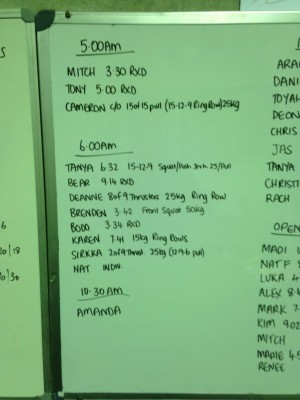 5:00AM
MITCH 3:30 RXD
TONY 5:00 RXD
CAMERON c/o 15 of 15 pull (15-12-9 Ring Row) 25kg
6:00AM
TANYA 6:32 15-12-9 Squat/Push Jerk 25/Pull
BEAR 9:14 RXD
DEANNE 8 of 9 Thrusters 25kg Ring Row
BRENDEN 3:42 Front Squat 50kg
BODD 3:34 RXD
KAREN 7:41 15kg Ring Rows
SIRKKA 2 of 9 Thrust. 25kg (12-9-6 pull)
NAT INDW.
10:30AM
AMANDA
S
6
20/18
20/30
ARA
DANI
TOYAH
DEON
CHRIS
JAS
TANYA
CHRISTI
RACH
OPEN
MADI
NAT F 8
LUKA 4
ALEX 8:4
MARK 7
KIM 9:02
MITCH
MARIE 4:5
RENEE